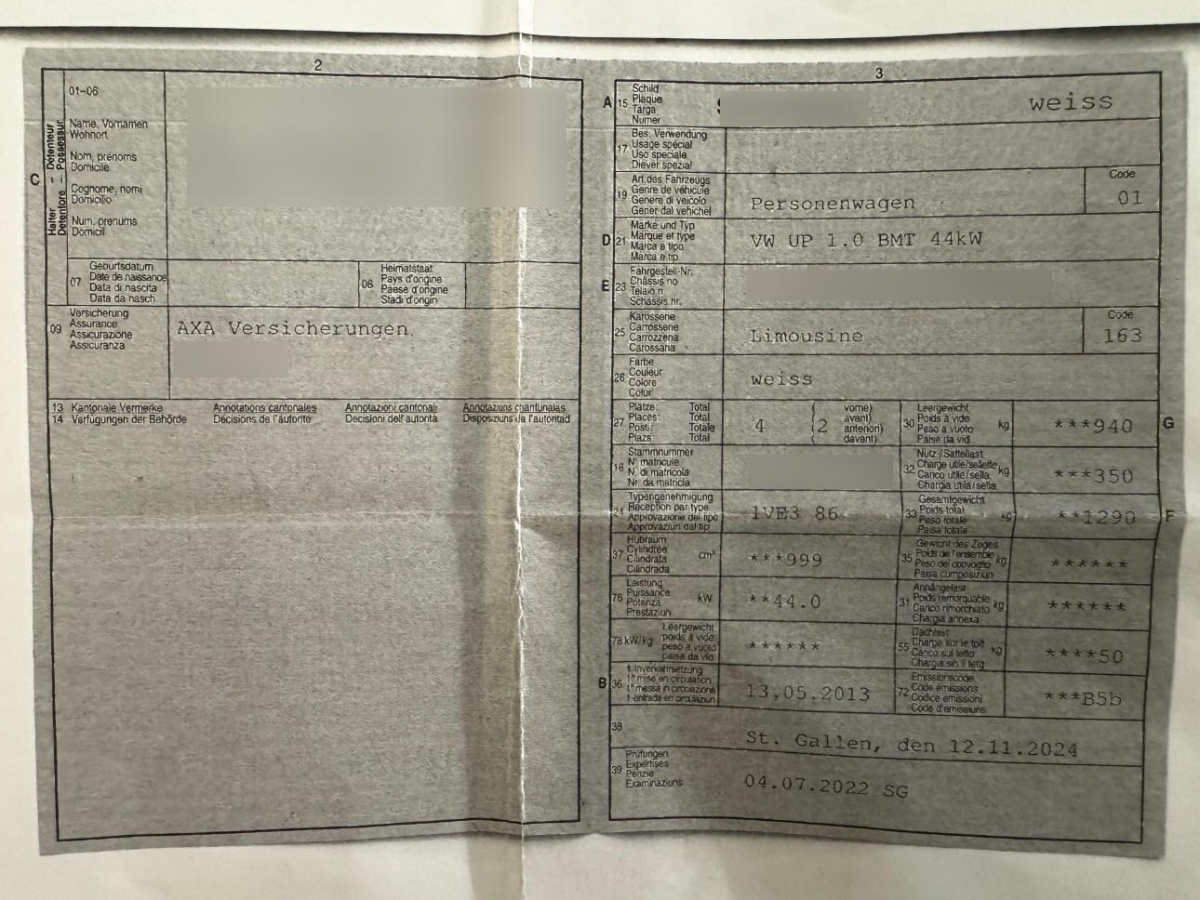 2
01-06
Name, Vornamen
Wohnort
Nom, prénoms
Domicile
Cognome, nomi
Domicilio
Num, prenums
Domicil
C
Halter – Détenteur
Detentore – Possessur
07
Geburtsdatum
Date de naissance
Data di nascita
Data da nasch
08
Heimatstaat
Pays d'origine
Paese d'origine
Stadi d'origin
09
Versicherung
Assurance
Assicurazione
Assicuranza
AXA Versicherungen
13 Kantonale Vermerke Annotations cantonales Annotazioni cantonali Annotaziuns chantunalas
14 Verfügungen der Behörde Décisions de l'autorité Decisioni dell'autorità Disposiziuns da l'autoritad
3
A 15
Schild
Plaque
Targa
Numer
weiss
17
Bes. Verwendung
Usage spécial
Uso speciale
Diever spezial
19
Art des Fahrzeugs
Genre de véhicule
Genere di veicolo
Gener dal vehichel
Personenwagen
Code
01
D 21
Marke und Typ
Marque et type
Marca e tipo
Marca e tip
VW UP 1.0 BMT 44kW
E 23
Fahrgestell-Nr.
Châssis no
Telaio n.
Schassis nr.
25
Karosserie
Carrosserie
Carrozzeria
Carossaria
Limousine
Code
163
26
Farbe
Couleur
Colore
Colur
weiss
27
Plätze: Total
Places: Total
Posti: Totale
Plazs: Total
4
2
vorne)
avant)
anteriori)
davant)
30
Leergewicht
Poids à vide
Peso a vuoto
Paisa da vid
kg
***940
G
18
Stammnummer
N° matricule
N. di matricola
Nr. da matricla
32
Nutz-/Sattellast
Charge utile/sellette
Carico utile/sella
Chargia utila/sella
kg
***350
24
Typengenehmigung
Réception par type
Approvazione del tipo
Approvaziun dal tip
1VE3 86
33
Gesamtgewicht
Poids total
Peso totale
Paisa totala
kg
**1290
F
37
Hubraum
Cylindrée
Cilindrata
Cilindrada
cm³
***999
35
Gewicht des Zuges
Poids de l'ensemble
Peso del convoglio
Paisa cumposiziun
kg
******
76
Leistung
Puissance
Potenza
Prestaziun
kW
**44.0
31
Anhängelast
Poids remorquable
Carico rimorchiato
Chargia annexa
kg
******
78 kW/kg
Leergewicht
poids à vide
peso a vuoto
paisa da vid
******
55
Dachlast
Charge sur le toit
Carico sul tetto
Chargia sin il tetg
kg
****50
B 36
1. Inverkehrsetzung
1re mise en circulation
1a messa in circolazione
1. entrada en circulaziun
13.05.2013
72
Emissionscode
Code émissions
Codice emissioni
Code d'emissiuns
***B5b
38
St. Gallen, den 12.11.2024
39
Prüfungen
Expertises
Perizie
Examinaziuns
04.07.2022 SG